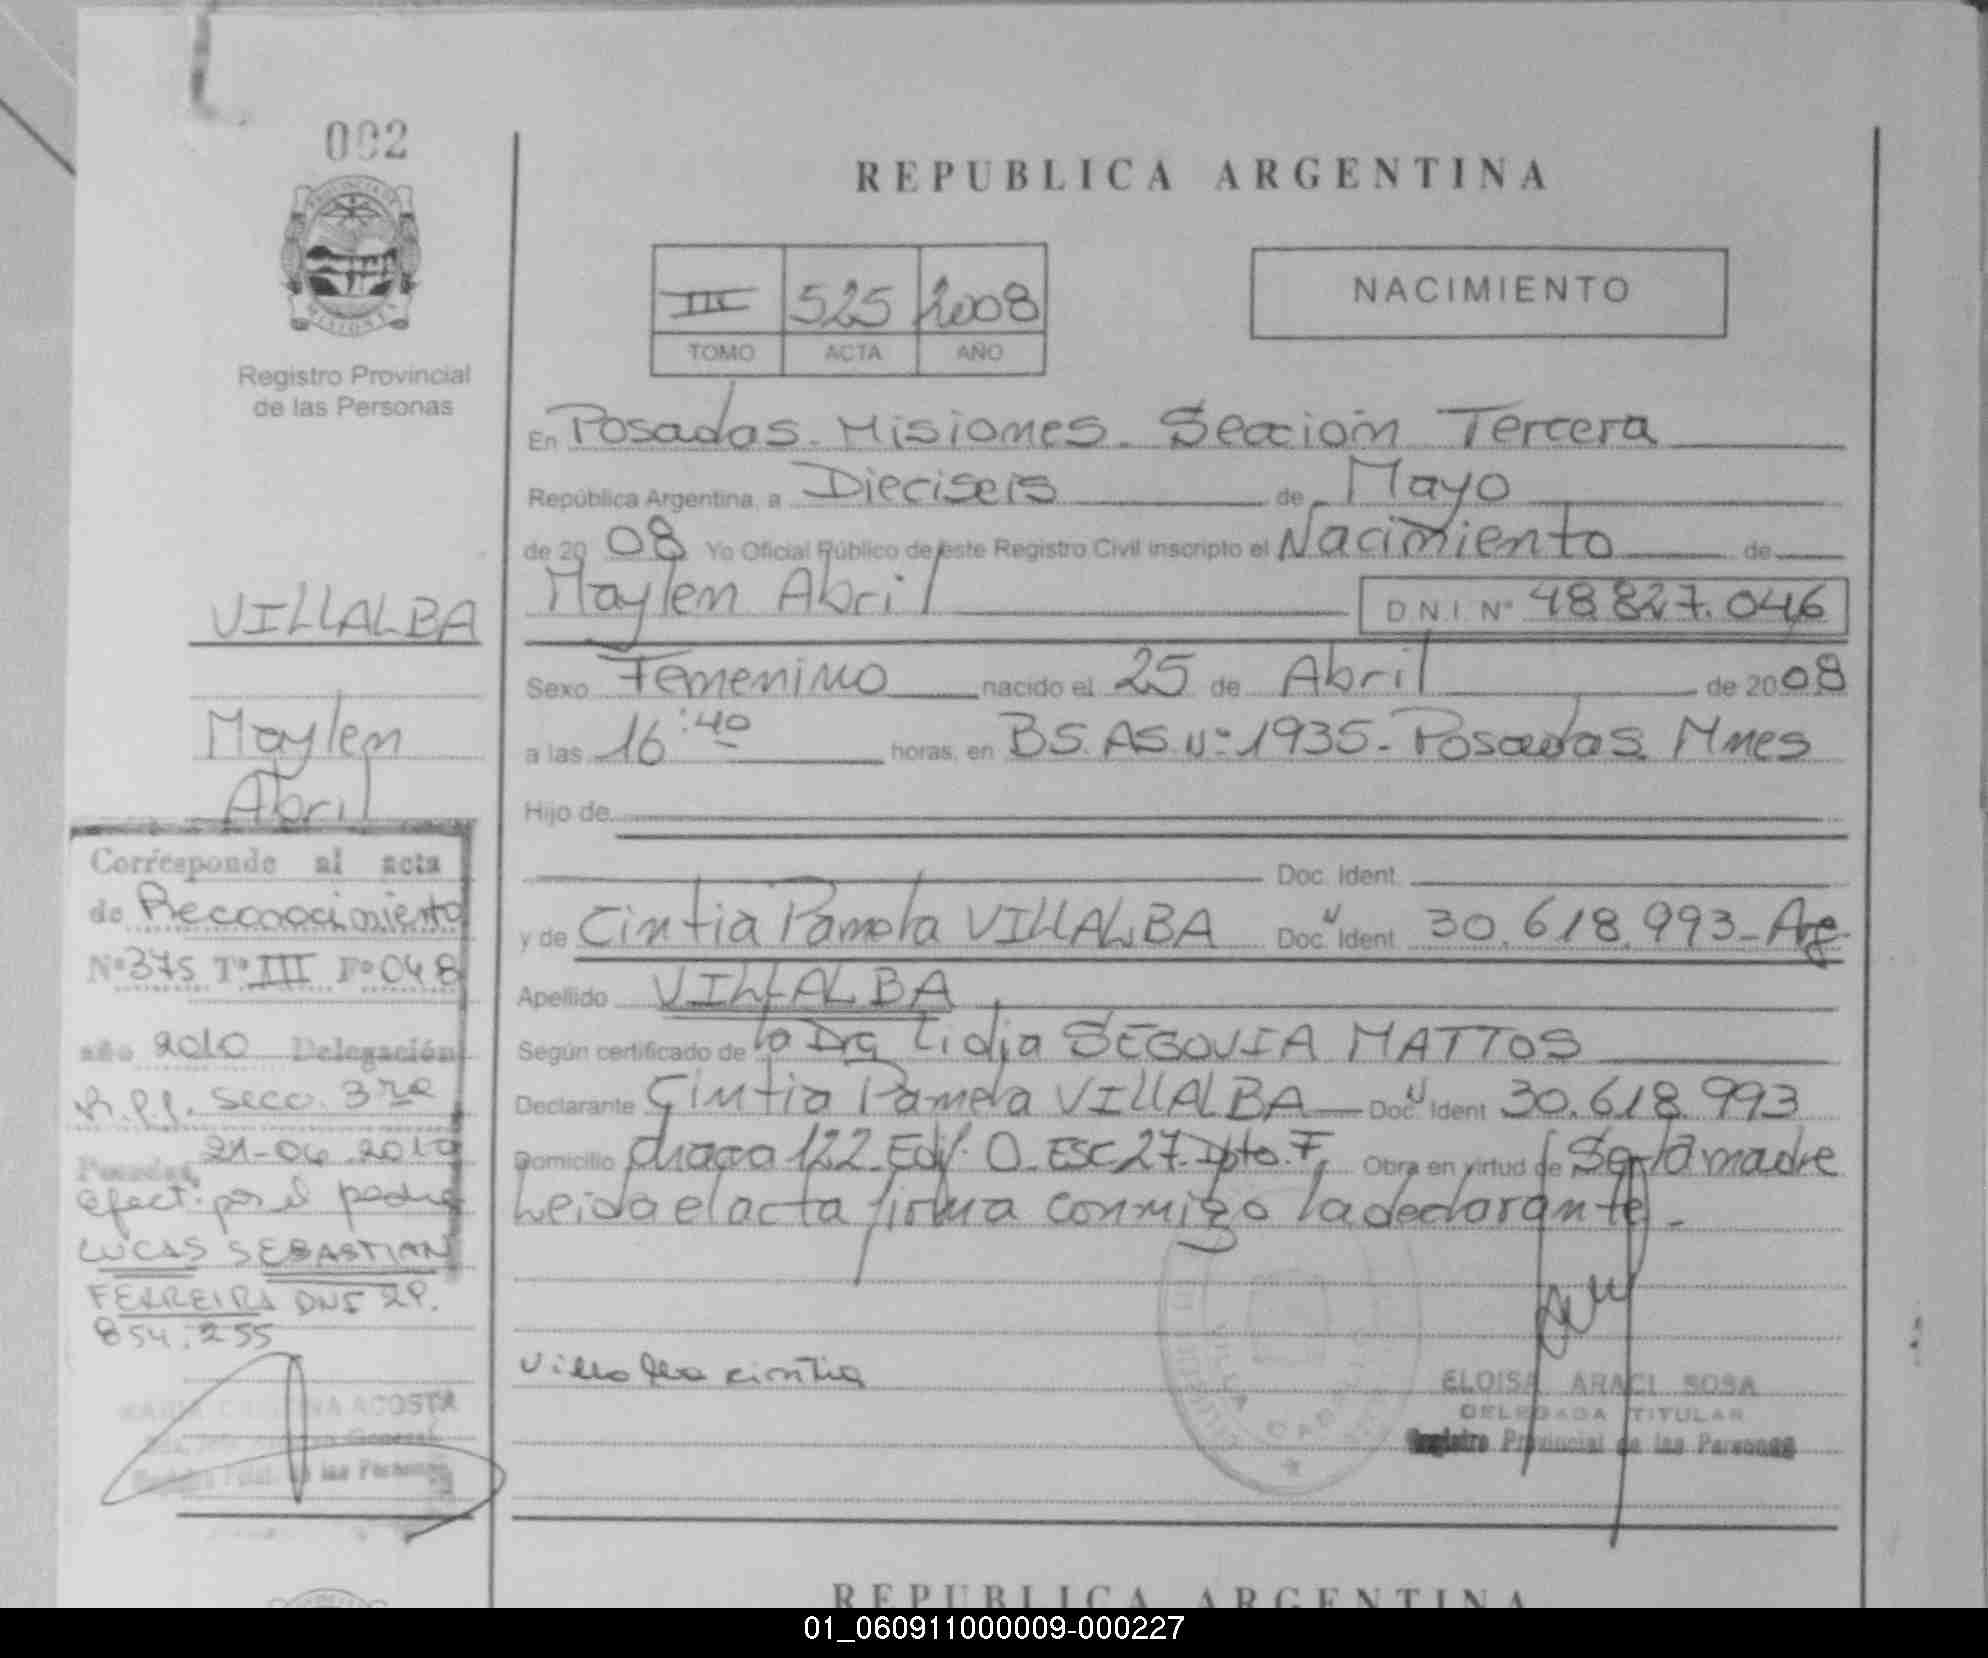 002
Registro Provincial
de las Personas
VILLALBA
Maylen
Abril
Corresponde al acta
de Reconocimiento
Nº 375 Tº III Fº 048
año 2010 Delegación
R.P.P. Secc. 3ra
Posadas, 21-04-2010
efect. por el padre
LUCAS SEBASTIAN
FERREIRA DNI 29.
854.255
ACOSTA
General
de las Personas
REPUBLICA ARGENTINA
III 525 2008
TOMO ACTA AÑO
NACIMIENTO
En Posadas - Misiones - Sección Tercera
República Argentina, a Dieciseis de Mayo
de 20 08 Yo Oficial Público de este Registro Civil inscripto el Nacimiento de
Maylen Abril D.N.I. Nº 48.827.046
Sexo Femenino nacido el 25 de Abril de 2008
a las 16:40 horas, en BS. AS. Nº 1935 - Posadas Mnes
Hijo de
Doc. Ident.
y de Cintia Pamela VILLALBA Doc. Ident 30.618.993 - Arg
Apellido VILLALBA
Según certificado de la Dra Lidia SEGOVIA MATTOS
Declarante Cintia Pamela VILLALBA Doc. Ident 30.618.993
Domicilio chaca 122 - Edif. O - ESC 27 - Dpto. F Obra en virtud de Ser la madre
Leida el acta firma conmigo la declarante -
Villalba cintia
ELOISA ARACI SOSA
DELEGADA TITULAR
Registro Provincial de las Personas
REPUBLICA ARGENTINA
01_060911000009-000227